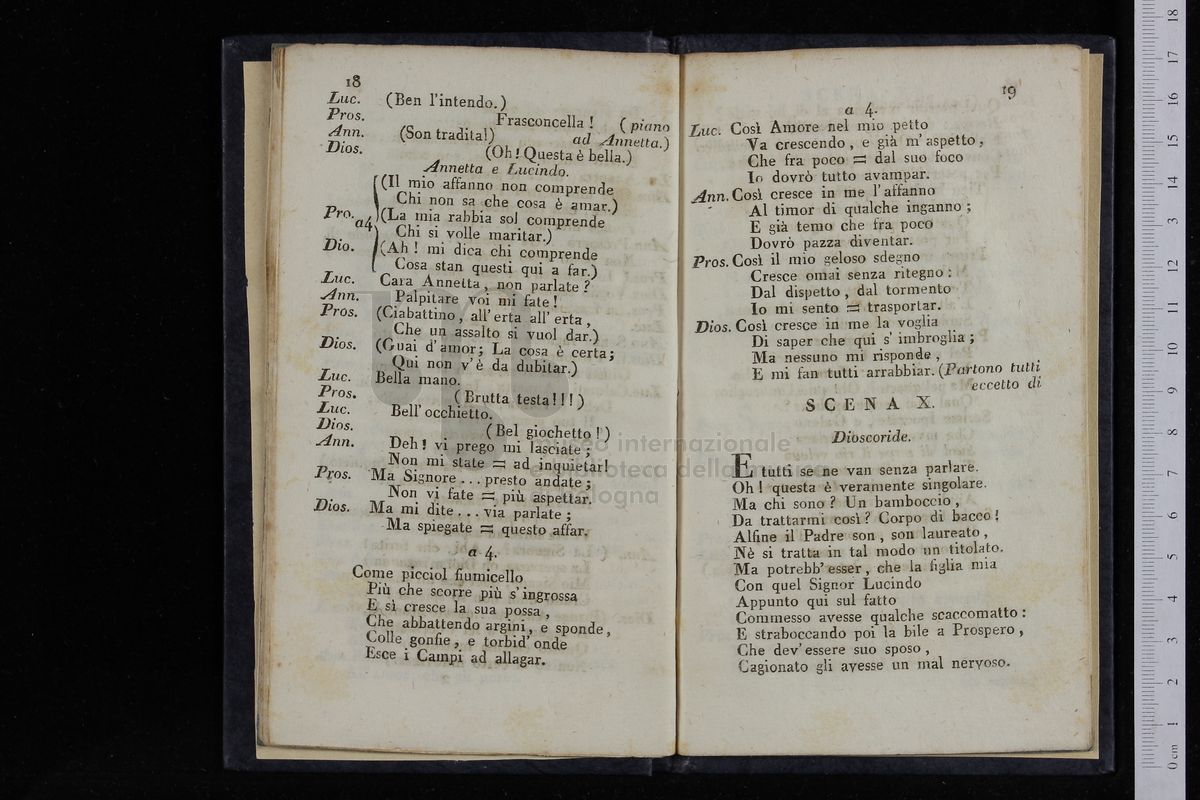 18
Luc. (Ben l'intendo.)
Pros. Frasconcella! (piano
Ann. (Son tradita!) ad Annetta.)
Dios. (Oh! Questa è bella.)
Annetta e Lucindo.
(Il mio affanno non comprende
Chi non sa che cosa è amar.)
Pro. a4 (La mia rabbia sol comprende
Chi si volle maritar.)
Dio. (Ah! mi dica chi comprende
Cosa stan questi qui a far.)
Luc. Cara Annetta, non parlate?
Ann. Palpitare voi mi fate!
Pros. (Ciabattino, all'erta all'erta,
Che un assalto si vuol dar.)
Dios. (Guai d'amor; La cosa è certa;
Qui non v'è da dubitar.)
Luc. Bella mano.
Pros. (Brutta testa!!!)
Luc. Bell'occhietto.
Dios. (Bel giochetto!)
Ann. Deh! vi prego mi lasciate;
Non mi state = ad inquietar!
Pros. Ma Signore... presto andate;
Non vi fate = più aspettar.
Dios. Ma mi dite... via parlate;
Ma spiegate = questo affar.
a 4.
Come picciol fiumicello
Più che scorre più s'ingrossa
E sì cresce la sua possa,
Che abbattendo argini, e sponde,
Colle gonfie, e torbid'onde
Esce i Campi ad allagar.
19
a 4.
Luc. Così Amore nel mio petto
Va crescendo, e già m'aspetto,
Che fra poco = dal suo foco
Io dovrò tutto avampar.
Ann. Così cresce in me l'affanno
Al timor di qualche inganno;
E già temo che fra poco
Dovrò pazza diventar.
Pros. Così il mio geloso sdegno
Cresce omai senza ritegno:
Dal dispetto, dal tormento
Io mi sento = trasportar.
Dios. Così cresce in me la voglia
Di saper che qui s'imbroglia;
Ma nessuno mi risponde,
E mi fan tutti arrabbiar. (Partono tutti
eccetto di
SCENA X.
Dioscoride.
E tutti se ne van senza parlare.
Oh! questa è veramente singolare.
Ma chi sono? Un bamboccio,
Da trattarmi così? Corpo di bacco!
Alfine il Padre son, son laureato,
Nè si tratta in tal modo un titolato.
Ma potrebb'esser, che la figlia mia
Con quel Signor Lucindo
Appunto qui sul fatto
Commesso avesse qualche scaccomatto:
E straboccando poi la bile a Prospero,
Che dev'essere suo sposo,
Cagionato gli avesse un mal nervoso.
museo internazionale
e biblioteca della
bologna
0 cm 1 2 3 4 5 6 7 8 9 10 11 12 13 14 15 16 17 18